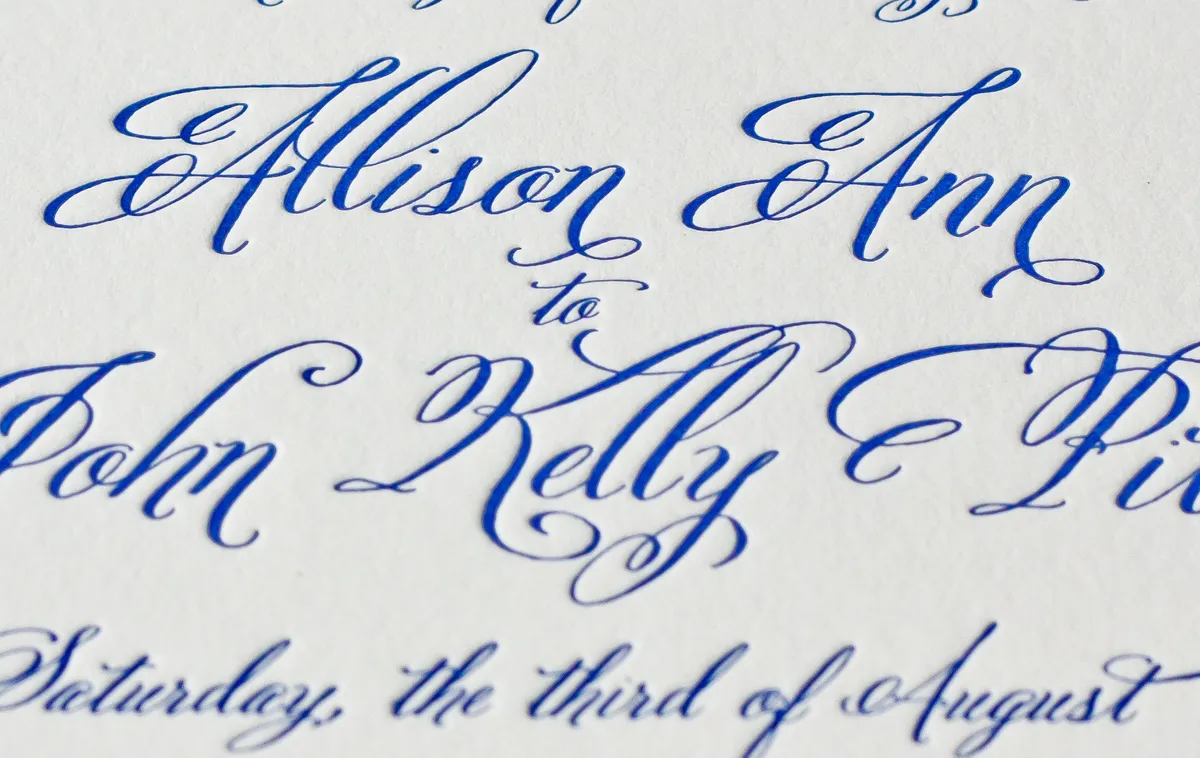 Allison Ann
to
John Kelly
Saturday, the third of August